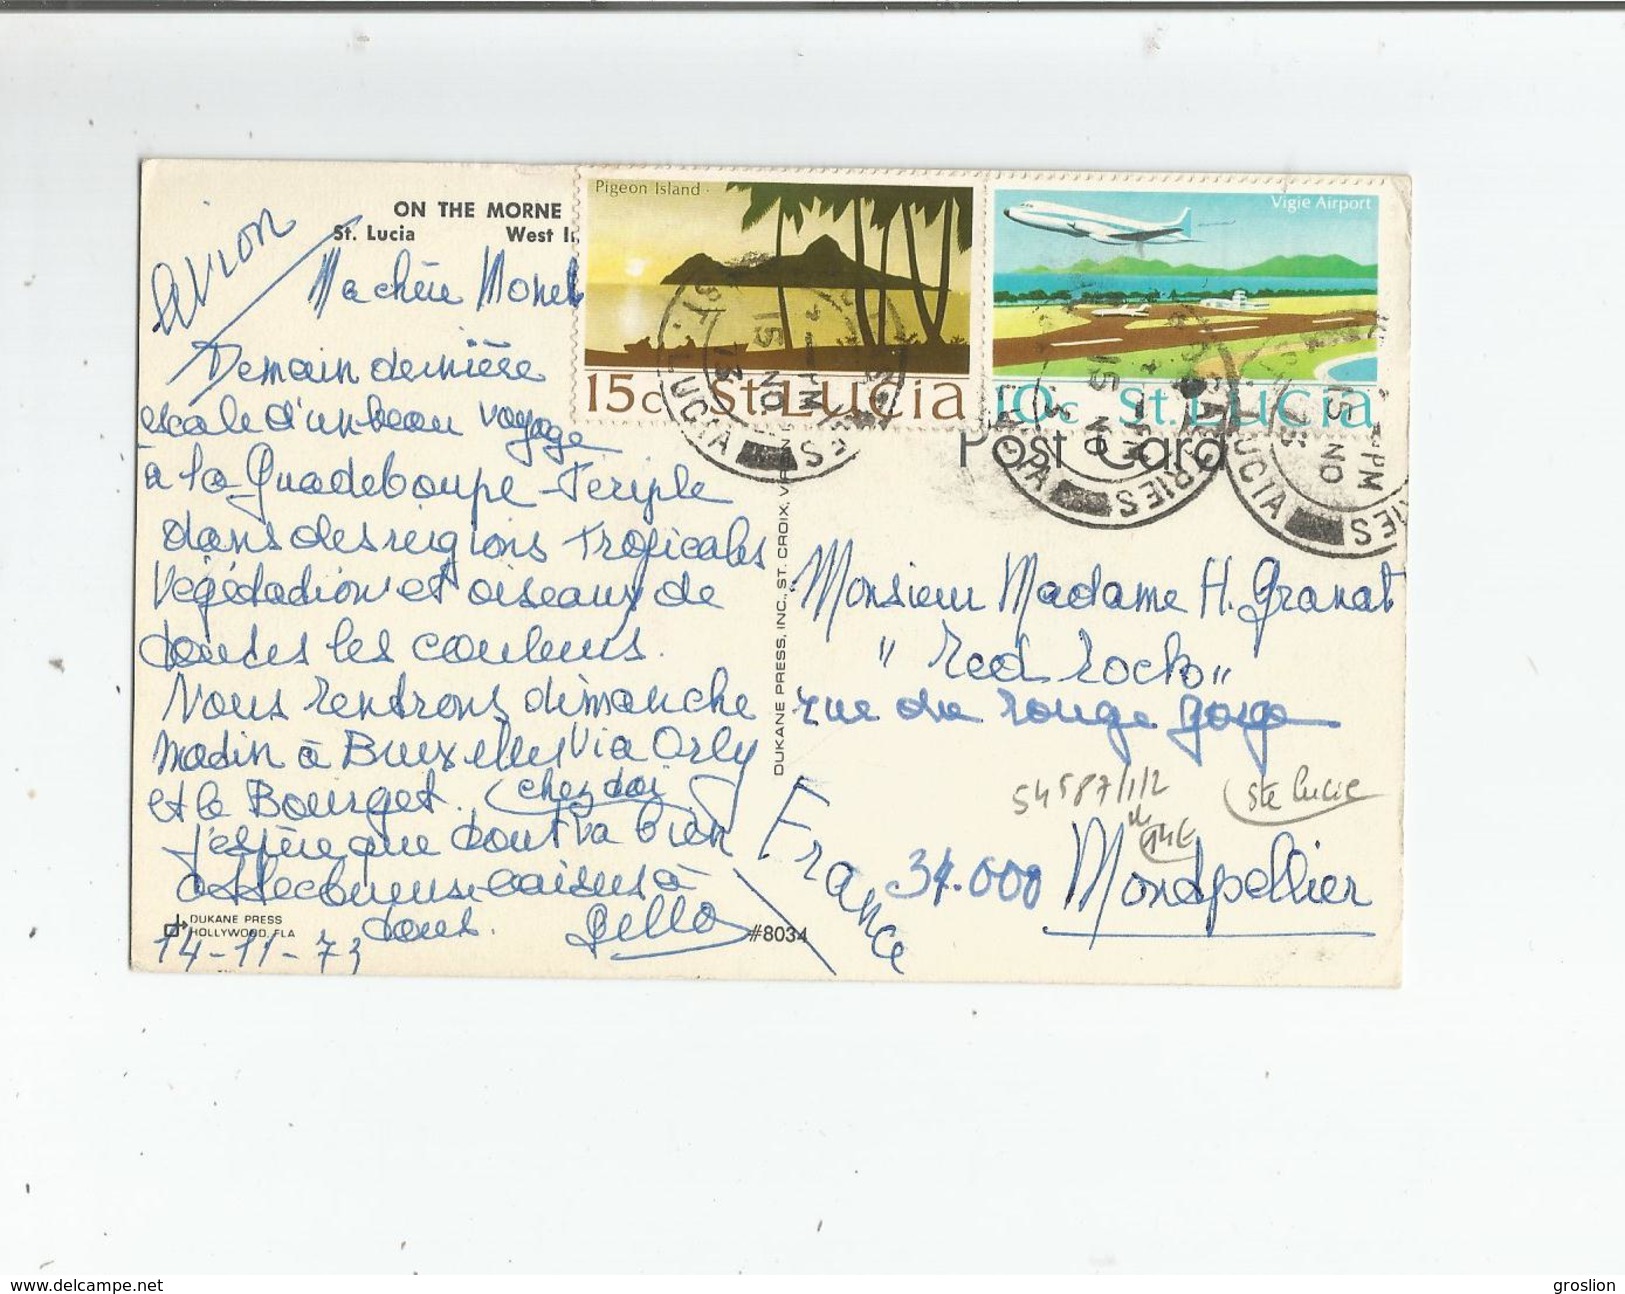 ON THE MORNE
St. Lucia West I
avion
Ma chère Monet
Demain dernière
escale d'un beau voyage
à la Guadeloupe - Périple
dans des régions tropicales
Végétation et oiseaux de
toutes les couleurs.
Nous rentrons dimanche
matin à Bruxelles via Orly
et le Bourget.
chez toi
J'espère que tout va bien
affectueuse baisers à
tous.
14-11-73
DUKANE PRESS
HOLLYWOOD, FLA
#8034
DUKANE PRESS, INC., ST. CROIX, VI
Pigeon Island
15c St. Lucia
Vigie Airport
10c St. Lucia
ST. LUCIA
15 NO
73
Post Card
Monsieur Madame H. Granat
"Red Rocks"
rue du rouge gorge
54587/1/2
14€
Ste Lucie
34.000 Montpellier
France
www.delcampe.net
groslion